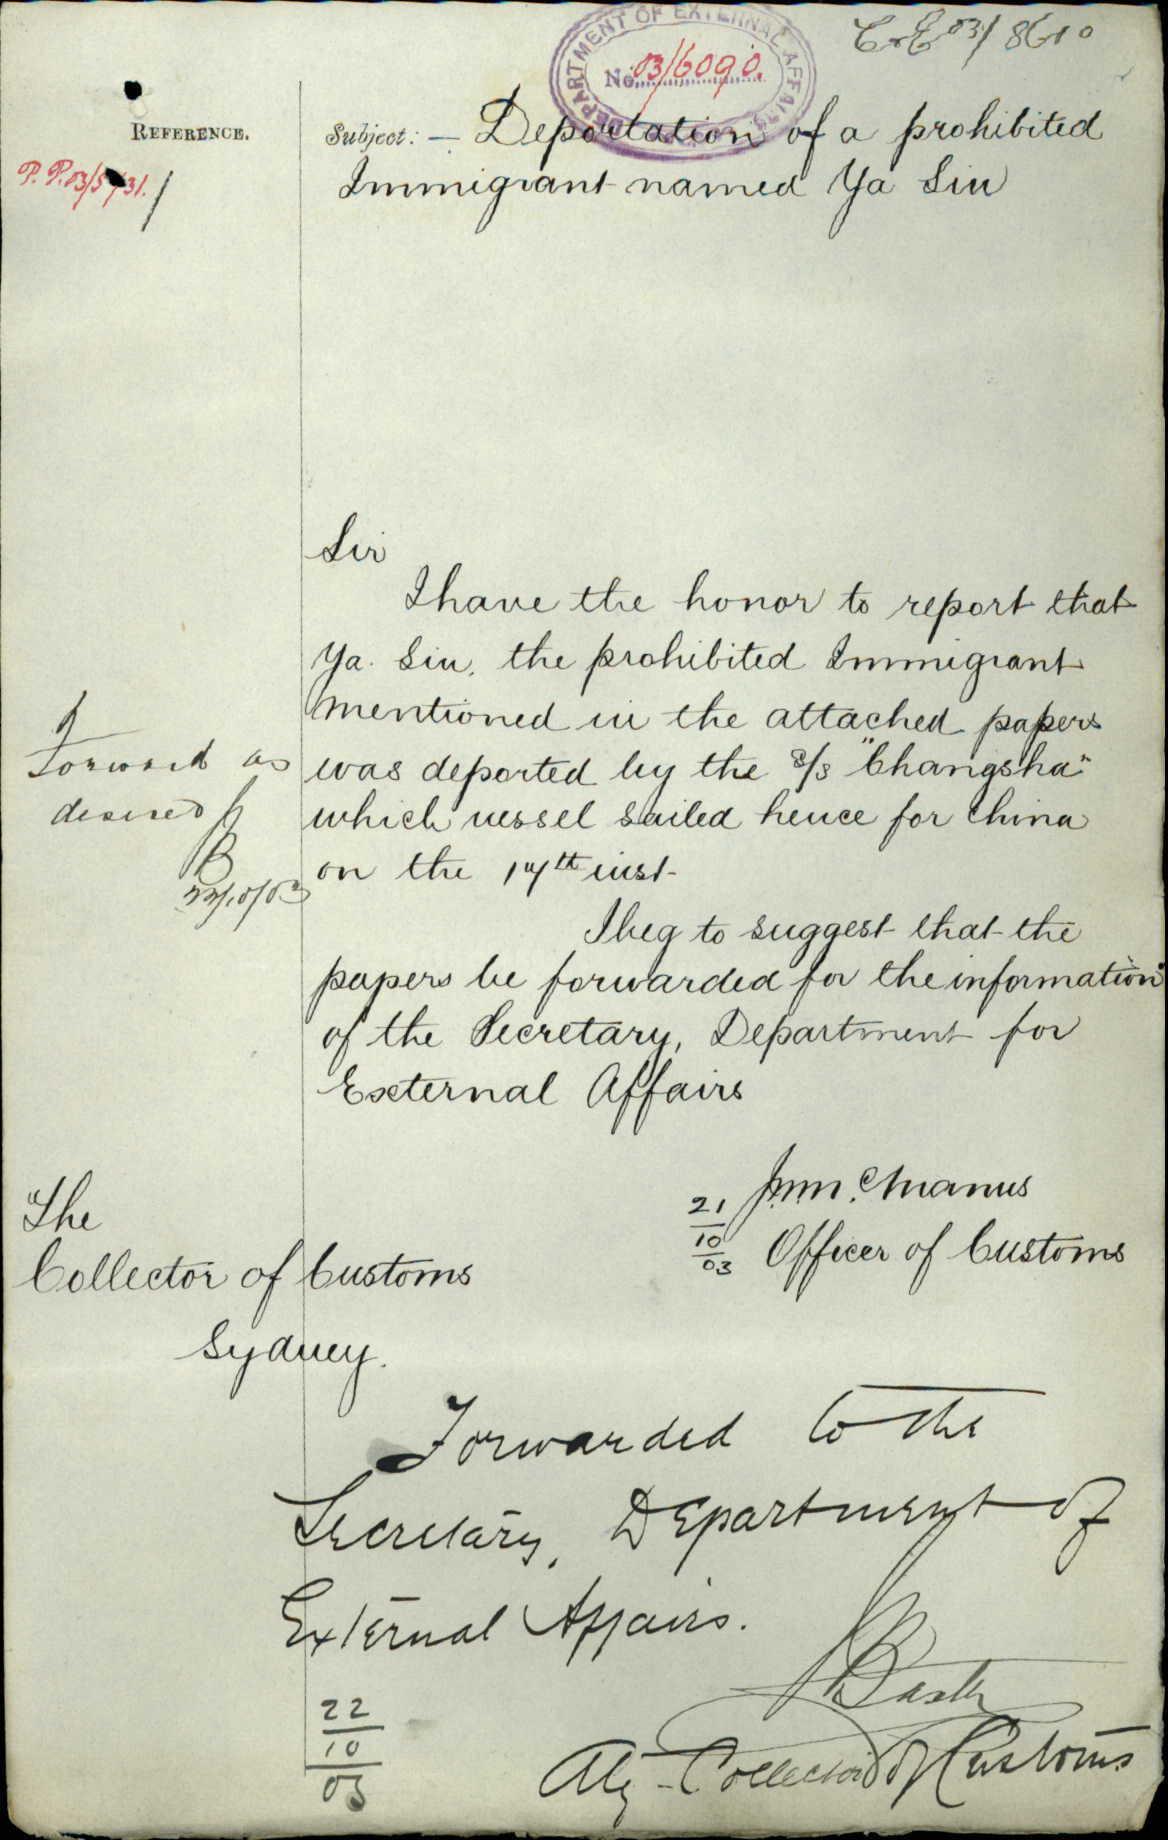 C & E 03/8610
DEPARTMENT OF EXTERNAL AFFAIRS
No. 03/6090.
REFERENCE.
P.P. 03/5731.
Subject: — Deportation of a prohibited
Immigrant named Ya Sin
Sir
I have the honor to report that
Ya. Sin. the prohibited Immigrant
mentioned in the attached papers
was deported by the s/s "Changsha"
which vessel sailed hence for China
on the 17th inst.
I beg to suggest that the
papers be forwarded for the information
of the Secretary, Department for
External Affairs
Forward as
desired
B
22/10/03
21/10/03
J. McManus
Officer of Customs
The
Collector of Customs
Sydney.
Forwarded to the
Secretary, Department of
External Affairs.
Baxter
22/10/03
Actg. Collector of Customs